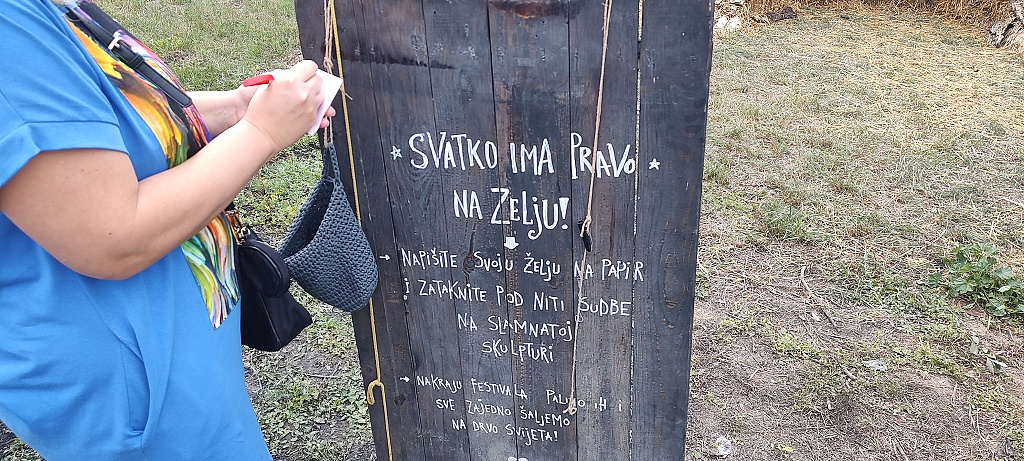 SVATKO IMA PRAVO
NA ŽELJU!
→ NAPIŠITE SVOJU ŽELJU NA PAPIR
i ZATAKNITE POD NITI SUDBE
NA SLAMNATOJ
SKULPTURI
→ NAKRAJU FESTIVALA PALIMO IH I
SVE ZAJEDNO ŠALJEMO
NA DRVO SVIJETA!